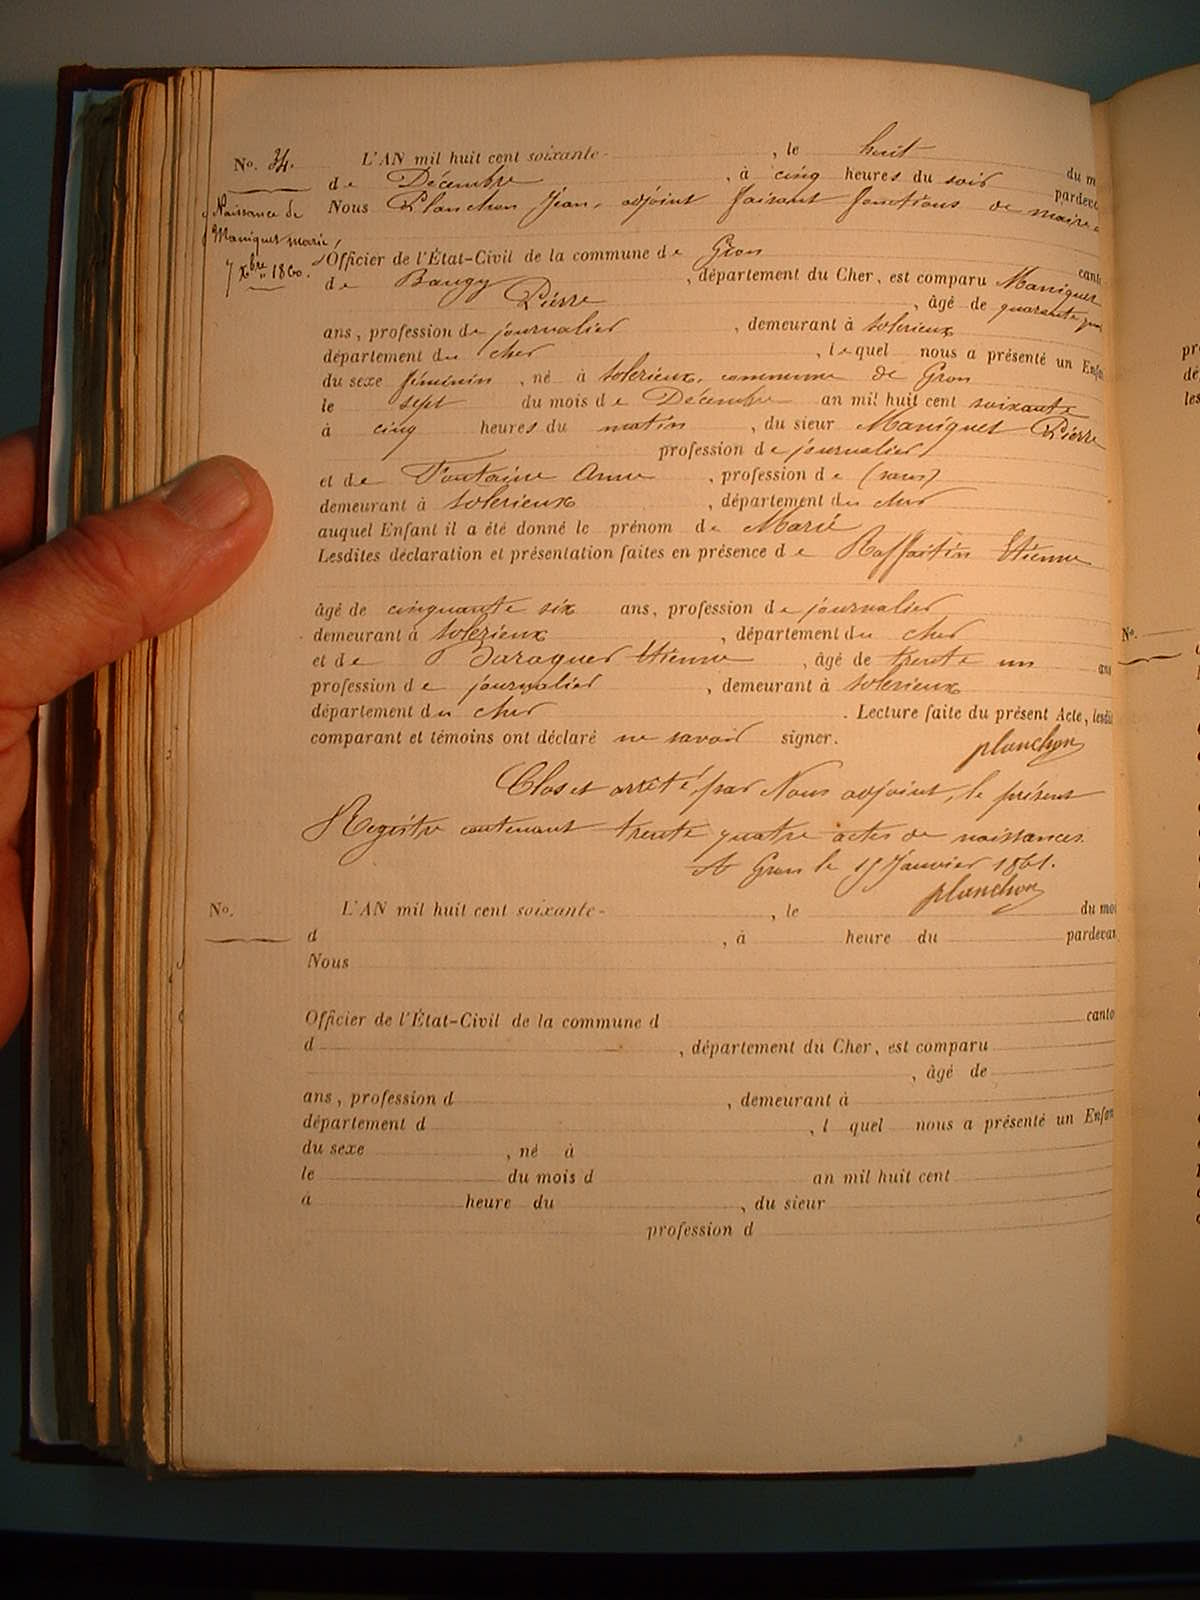 No. 34. L'AN mil huit cent soixante- , le huit du m
de Décembre , à cinq heures du soir pardeva
Naissance de
Maniquet marie,
7 xbre 1860.
Nous Planchon Jean, adjoint faisant fonctions de maire
Officier de l'État-Civil de la commune de Gron canto
de Baugy , département du Cher, est comparu Maniquet
Pierre , âgé de quarante
ans, profession de journalier , demeurant à solerieux
département du cher , lequel nous a présenté un Enfan
du sexe féminin , né à solerieux, commune de Gron
le sept du mois de Décembre an mil huit cent soixante
à cinq heures du matin , du sieur Maniquet Pierre
profession de journalier
et de Fontaine Anne , profession de (sans)
demeurant à solerieux , département du cher
auquel Enfant il a été donné le prénom de Marie
Lesdites déclaration et présentation faites en présence de Raffaitin Etienne
âgé de cinquante six ans, profession de journalier
demeurant à solerieux , département du cher
et de Etienne , âgé de trente un ans
profession de journalier , demeurant à solerieux
département du cher . Lecture faite du présent Acte, lesdit
comparant et témoins ont déclaré ne savoir signer. planchon
Clos et arrêté par Nous adjoint, le présent
Registre contenant trente quatre actes de naissances.
A Gron le 15 Janvier 1861.
planchon
No. L'AN mil huit cent soixante- , le du moi
d , à heure du pardevan
Nous
Officier de l'État-Civil de la commune d canto
d , département du Cher, est comparu
, âgé de
ans, profession d , demeurant à
département d , l quel nous a présenté un Enfan
du sexe , né à
le du mois d an mil huit cent
à heure du , du sieur
profession d
pr
dé
les
No.